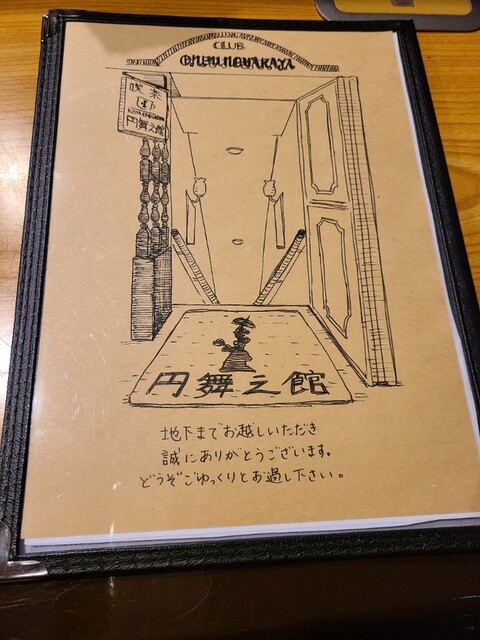 CLUB
ENBUNOYAKATA
喫茶
円舞之館
円舞之館
地下までお越しいただき
誠にありがとうございます。
どうぞごゆっくりとお過し下さい。